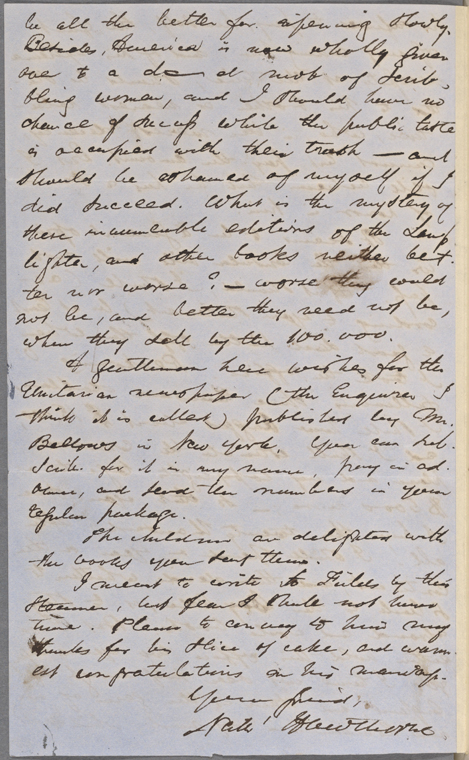 be all the better for ripening slowly.
Besides, America is now wholly given
over to a d—d mob of scrib-
bling women, and I should have no
chance of success while the public taste
is occupied with their trash — and
should be ashamed of myself if I
did succeed. What is the mystery of
these innumerable editions of the Lamp
lighter, and other books neither bet-
ter nor worse? — worse they could
not be, and better they need not be,
when they sell by the 100.000.
A gentleman here wishes for the
Unitarian newspaper (the Enquirer I
think it is called) published by Mr.
Bellows in New York. You can sub-
scribe for it in my name, pay in ad-
vance, and send the numbers in your
regular package.
The children are delighted with
the books you sent them.
I meant to write to Fields by this
steamer, but fear I shall not have
time. Please to convey to him my
thanks for his slice of cake, and warm-
est congratulations on his marriage.
Your friend,
Nath' Hawthorne